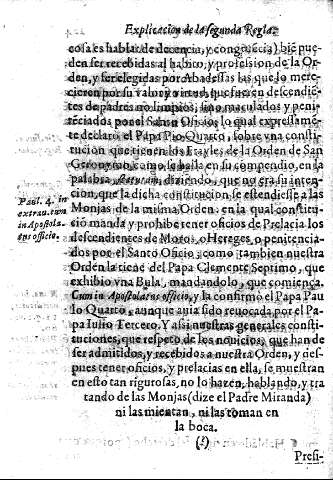 Explicacion de la segunda Regla.
cosa es hablar de decencia, y congruecia) bié pue-
den ser recebidas al habito, y profession de la Or-
den, y ser elegidas por Abadessas las que lo mere-
cieren por su valor y virtud, que fuessen descendié-
tes de padres no limpios, sino maculados y peni-
téciados por el Santo Oficio, lo qual expressamé-
te declaró el Papa Pio Quarto, sobre vna consti-
tucion que tienen los Frayles de la Orden de San
Geronymo, como se halla en su compendio, en la
palabra diziendo, que no era su inten-
cion, que la dicha constitucion se estendiesse a las
Monjas de la misma Orden. en la qual constitu-
ció manda y prohibe tener oficios de Prelacia los
descendientes de Moros, o Hereges, o penitencia-
dos por el Santo Oficio, como tambien nuestra
Orden la tiene del Papa Clemente Septimo, que
exhibio vna Bula, mandandolo, que comiença,
Cum in Apostolatus officio, y la confirmó el Papa Pau
lo Quarto, aunque auia sido reuocada por el Pa-
pa Iulio Tercero. Y assi nuestras generales consti-
tuciones, que respeto de los nouicios, que han de
ser admitidos, y recebidos a nuestra Orden, y des-
pues tener oficios, y prelacias en ella, se muestran
en esto tan rigurosas, no lo hazen, hablando, y tra
tando de las Monjas (dize el Padre Miranda)
ni las mientan, ni las toman en
la boca.
(!)
Presi-
Paul. 4. in
extrau. cum
in Apostola-
tus officio.